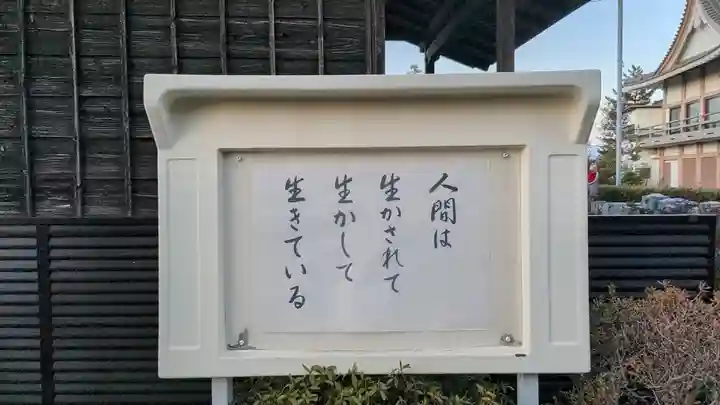 人間は
生かされて
生かして
生きている